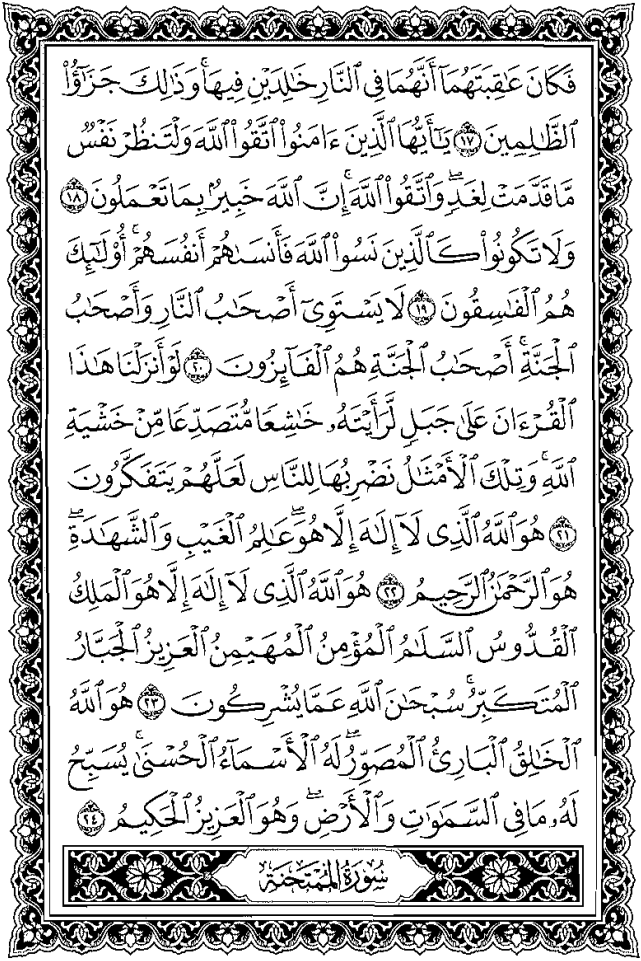 فَكَانَ عَٰقِبَتَهُمَآ أَنَّهُمَا فِى ٱلنَّارِ خَٰلِدَيْنِ فِيهَا ۚ وَذَٰلِكَ جَزَٰٓؤُا۟
ٱلظَّٰلِمِينَ ١٧ يَٰٓأَيُّهَا ٱلَّذِينَ ءَامَنُوا۟ ٱتَّقُوا۟ ٱللَّهَ وَلْتَنظُرْ نَفْسٌ
مَّا قَدَّمَتْ لِغَدٍ ۖ وَٱتَّقُوا۟ ٱللَّهَ ۚ إِنَّ ٱللَّهَ خَبِيرٌۢ بِمَا تَعْمَلُونَ ١٨
وَلَا تَكُونُوا۟ كَٱلَّذِينَ نَسُوا۟ ٱللَّهَ فَأَنسَىٰهُمْ أَنفُسَهُمْ ۚ أُو۟لَٰٓئِكَ
هُمُ ٱلْفَٰسِقُونَ ١٩ لَا يَسْتَوِىٓ أَصْحَٰبُ ٱلنَّارِ وَأَصْحَٰبُ
ٱلْجَنَّةِ ۚ أَصْحَٰبُ ٱلْجَنَّةِ هُمُ ٱلْفَآئِزُونَ ٢٠ لَوْ أَنزَلْنَا هَٰذَا
ٱلْقُرْءَانَ عَلَىٰ جَبَلٍ لَّرَأَيْتَهُۥ خَٰشِعًا مُّتَصَدِّعًا مِّنْ خَشْيَةِ
ٱللَّهِ ۚ وَتِلْكَ ٱلْأَمْثَٰلُ نَضْرِبُهَا لِلنَّاسِ لَعَلَّهُمْ يَتَفَكَّرُونَ
٢١ هُوَ ٱللَّهُ ٱلَّذِى لَآ إِلَٰهَ إِلَّا هُوَ ۖ عَٰلِمُ ٱلْغَيْبِ وَٱلشَّهَٰدَةِ ۖ
هُوَ ٱلرَّحْمَٰنُ ٱلرَّحِيمُ ٢٢ هُوَ ٱللَّهُ ٱلَّذِى لَآ إِلَٰهَ إِلَّا هُوَ ٱلْمَلِكُ
ٱلْقُدُّوسُ ٱلسَّلَٰمُ ٱلْمُؤْمِنُ ٱلْمُهَيْمِنُ ٱلْعَزِيزُ ٱلْجَبَّارُ
ٱلْمُتَكَبِّرُ ۚ سُبْحَٰنَ ٱللَّهِ عَمَّا يُشْرِكُونَ ٢٣ هُوَ ٱللَّهُ
ٱلْخَٰلِقُ ٱلْبَارِئُ ٱلْمُصَوِّرُ ۖ لَهُ ٱلْأَسْمَآءُ ٱلْحُسْنَىٰ ۚ يُسَبِّحُ
لَهُۥ مَا فِى ٱلسَّمَٰوَٰتِ وَٱلْأَرْضِ ۖ وَهُوَ ٱلْعَزِيزُ ٱلْحَكِيمُ ٢٤
سُورَةُ الْمُمْتَحنَةِ